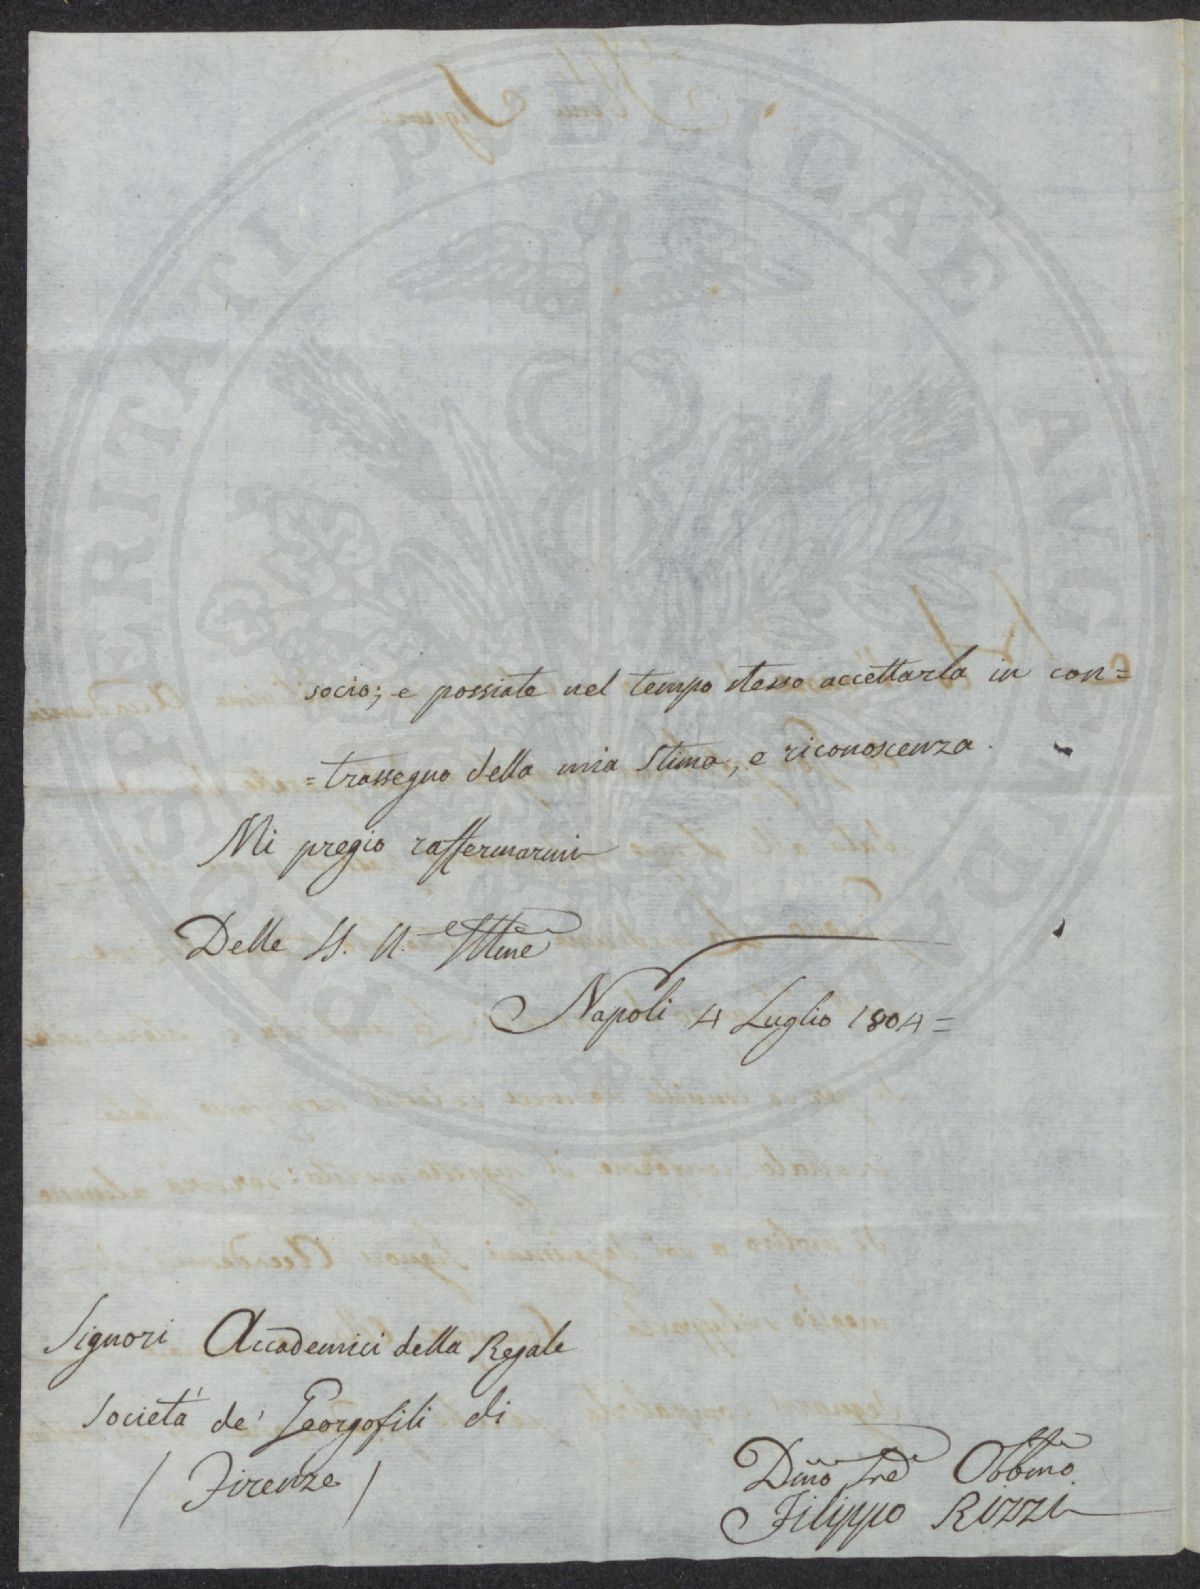 socio; e possiate nel tempo stesso accettarla in con=
=trassegno della mia stima, e riconoscenza.
Mi pregio raffermarmi
Delle SS. VV. Illme
Napoli 4 Luglio 1804=
Signori Accademici della Regale
Società de' Georgofili di
/ Firenze /
Dmo Sre Obbmo
Filippo Rizzi
PROSPERITATI PUBLICAE AUGENDAE